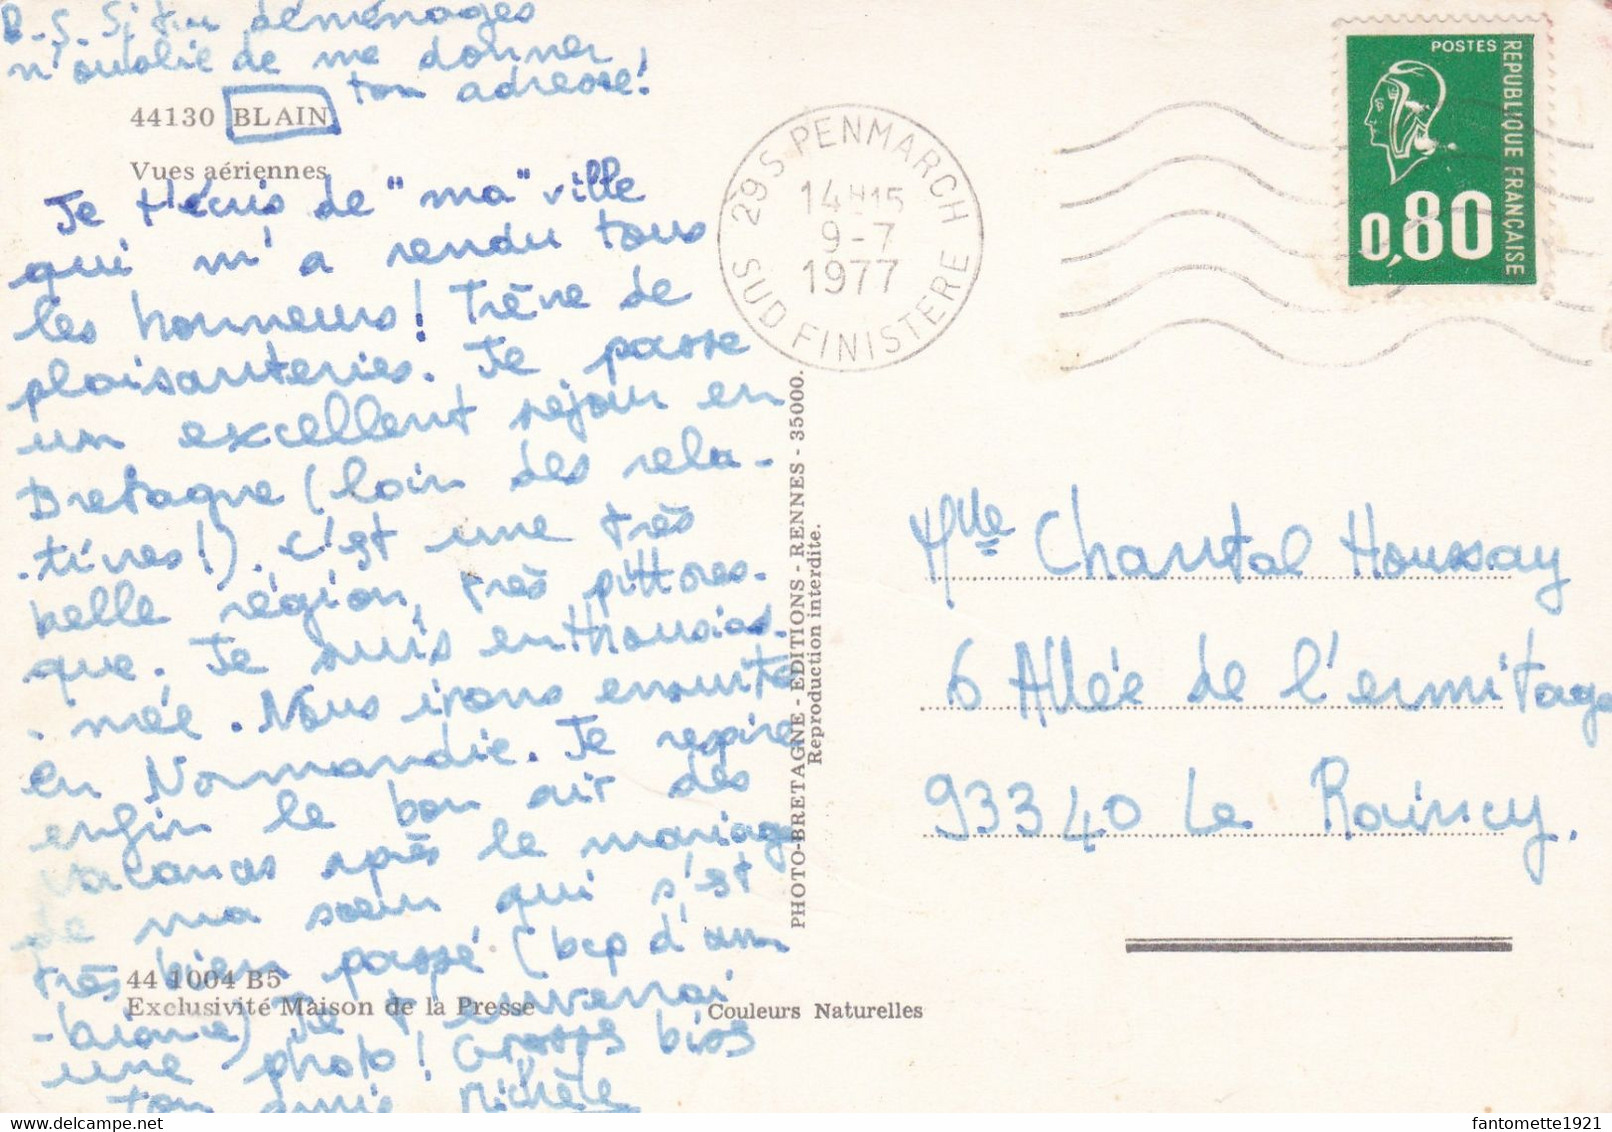 P.S. Si tu déménages
n'oublie de me donner
ton adresse!
44130 BLAIN
Vues aériennes
Je t'écris de "ma" ville
qui m'a rendu tous
les honneurs! Trève de
plaisanteries. Je passe
un excellent séjour en
Bretagne (loin des rela-
-tives!). C'est une très
belle région, très pittores-
que. Je suis enthousias-
-mée. Nous irons ensuite
en Normandie. Je respire
enfin le bon air des
vacances après le mariage
de ma sœur qui s'est
très bien passé (bcp d'am
-biance) Je t'enverrai
une photo! Grosses bises
ton amie Michèle
44 1004 B5
Exclusivité Maison de la Presse
Couleurs Naturelles
PHOTO-BRETAGNE - EDITIONS - RENNES - 35000.
Reproduction interdite.
29S PENMARCH
14H15
9-7
1977
SUD FINISTERE
POSTES
REPUBLIQUE FRANÇAISE
0,80
Mlle Chantal Houssay
6 Allée de l'ermitage
93340 Le Raincy.
fantomette1921